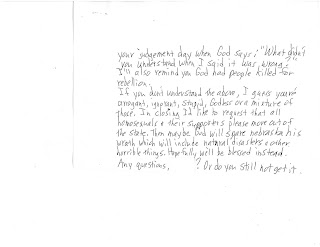 your judgement day when God says: "What didn't
you understand when I said it was wrong?"
I'll also remind you God had people killed for
rebellion.
If you don't understand the above, I guess you're
arrogant, ignorant, stupid, Godless or a mixture of
those. In closing I'd like to request that all
homosexuals & their supporters please move out of
the state. Then maybe God will spare nebraska his
wrath which will include natural disasters & other
horrible things. Hopefully we'll be blessed instead.
Any questions, ? Or do you still not get it.